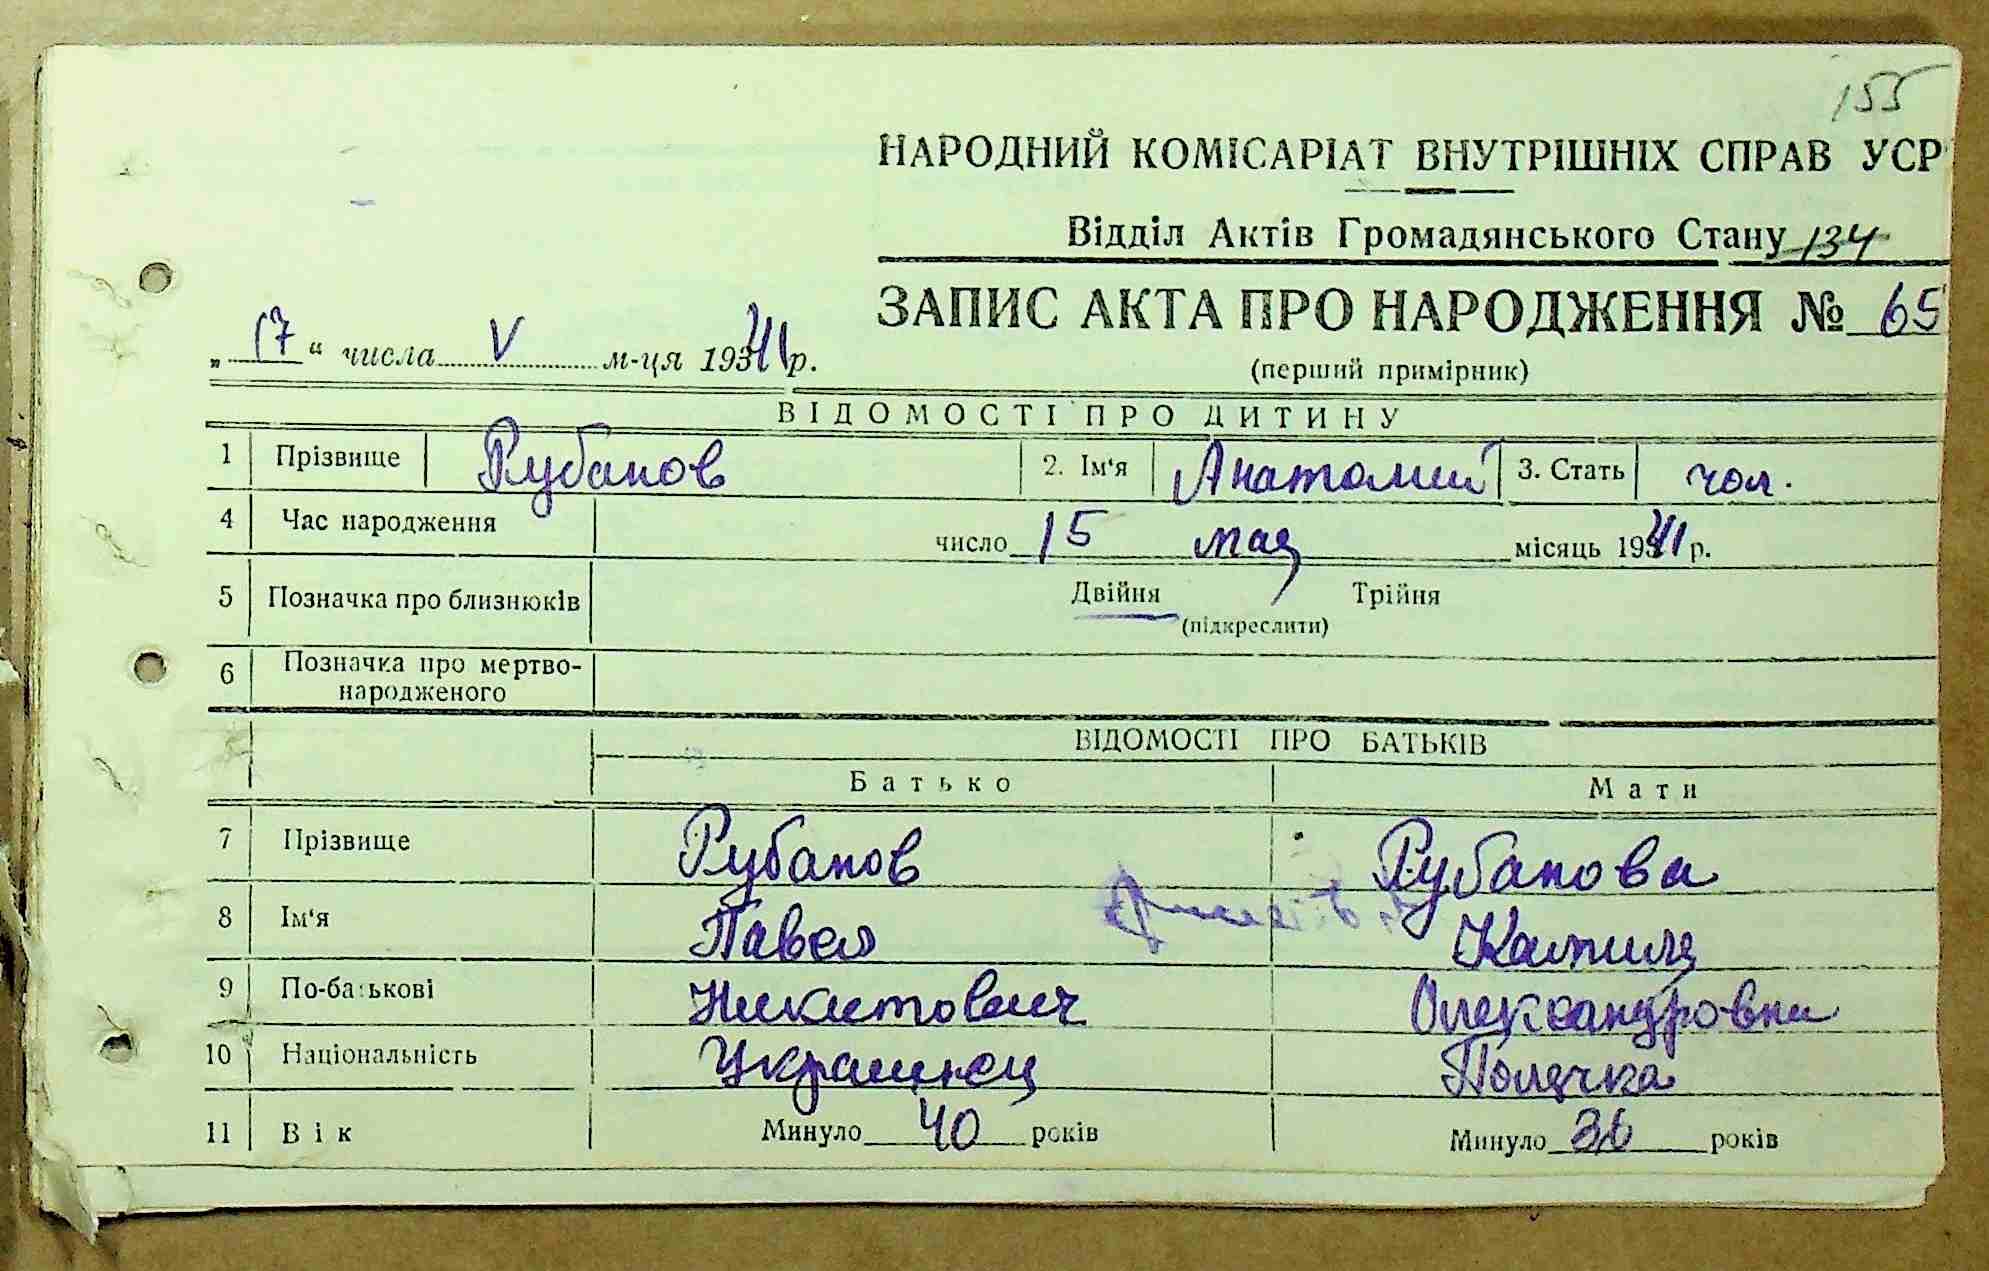 155
НАРОДНИЙ КОМІСАРІАТ ВНУТРІШНІХ СПРАВ УСР
Відділ Актів Громадянського Стану 134
ЗАПИС АКТА ПРО НАРОДЖЕННЯ № 65
„ 17 “ числа V м-ця 19341 р.
(перший примірник)
ВІДОМОСТІ ПРО ДИТИНУ
1 Прізвище Рубанов 2. Ім‘я Анатолий 3. Стать чол.
4 Час народження число 15 мая місяць 1941 р.
5 Позначка про близнюків Двійня Трійня
(підкреслити)
6 Позначка про мертво-
народженого
ВІДОМОСТІ ПРО БАТЬКІВ
Батько Мати
7 Прізвище Рубанов Рубанова
8 Ім‘я Павел
9 По-батькові Никитович Олександровна
10 Національність Украинец Полячка
11 Вік Минуло 40 років Минуло 36 років